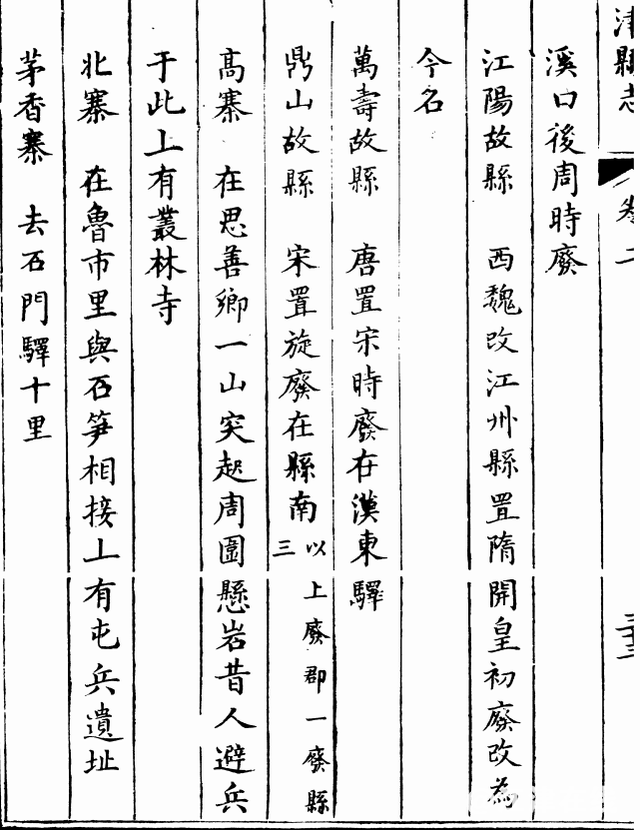 津縣志
卷二
三十三
溪口後周時廢
江陽故縣 西魏改江州縣置隋開皇初廢改為
今名
萬壽故縣 唐置宋時廢在漢東驛
鼎山故縣 宋置旋廢在縣南以上廢郡一廢縣
三
高寨 在思善鄉一山突起周圍懸岩昔人避兵
于此上有叢林寺
北寨 在魯市里與石笋相接上有屯兵遺址
茅香寨 去石門驛十里